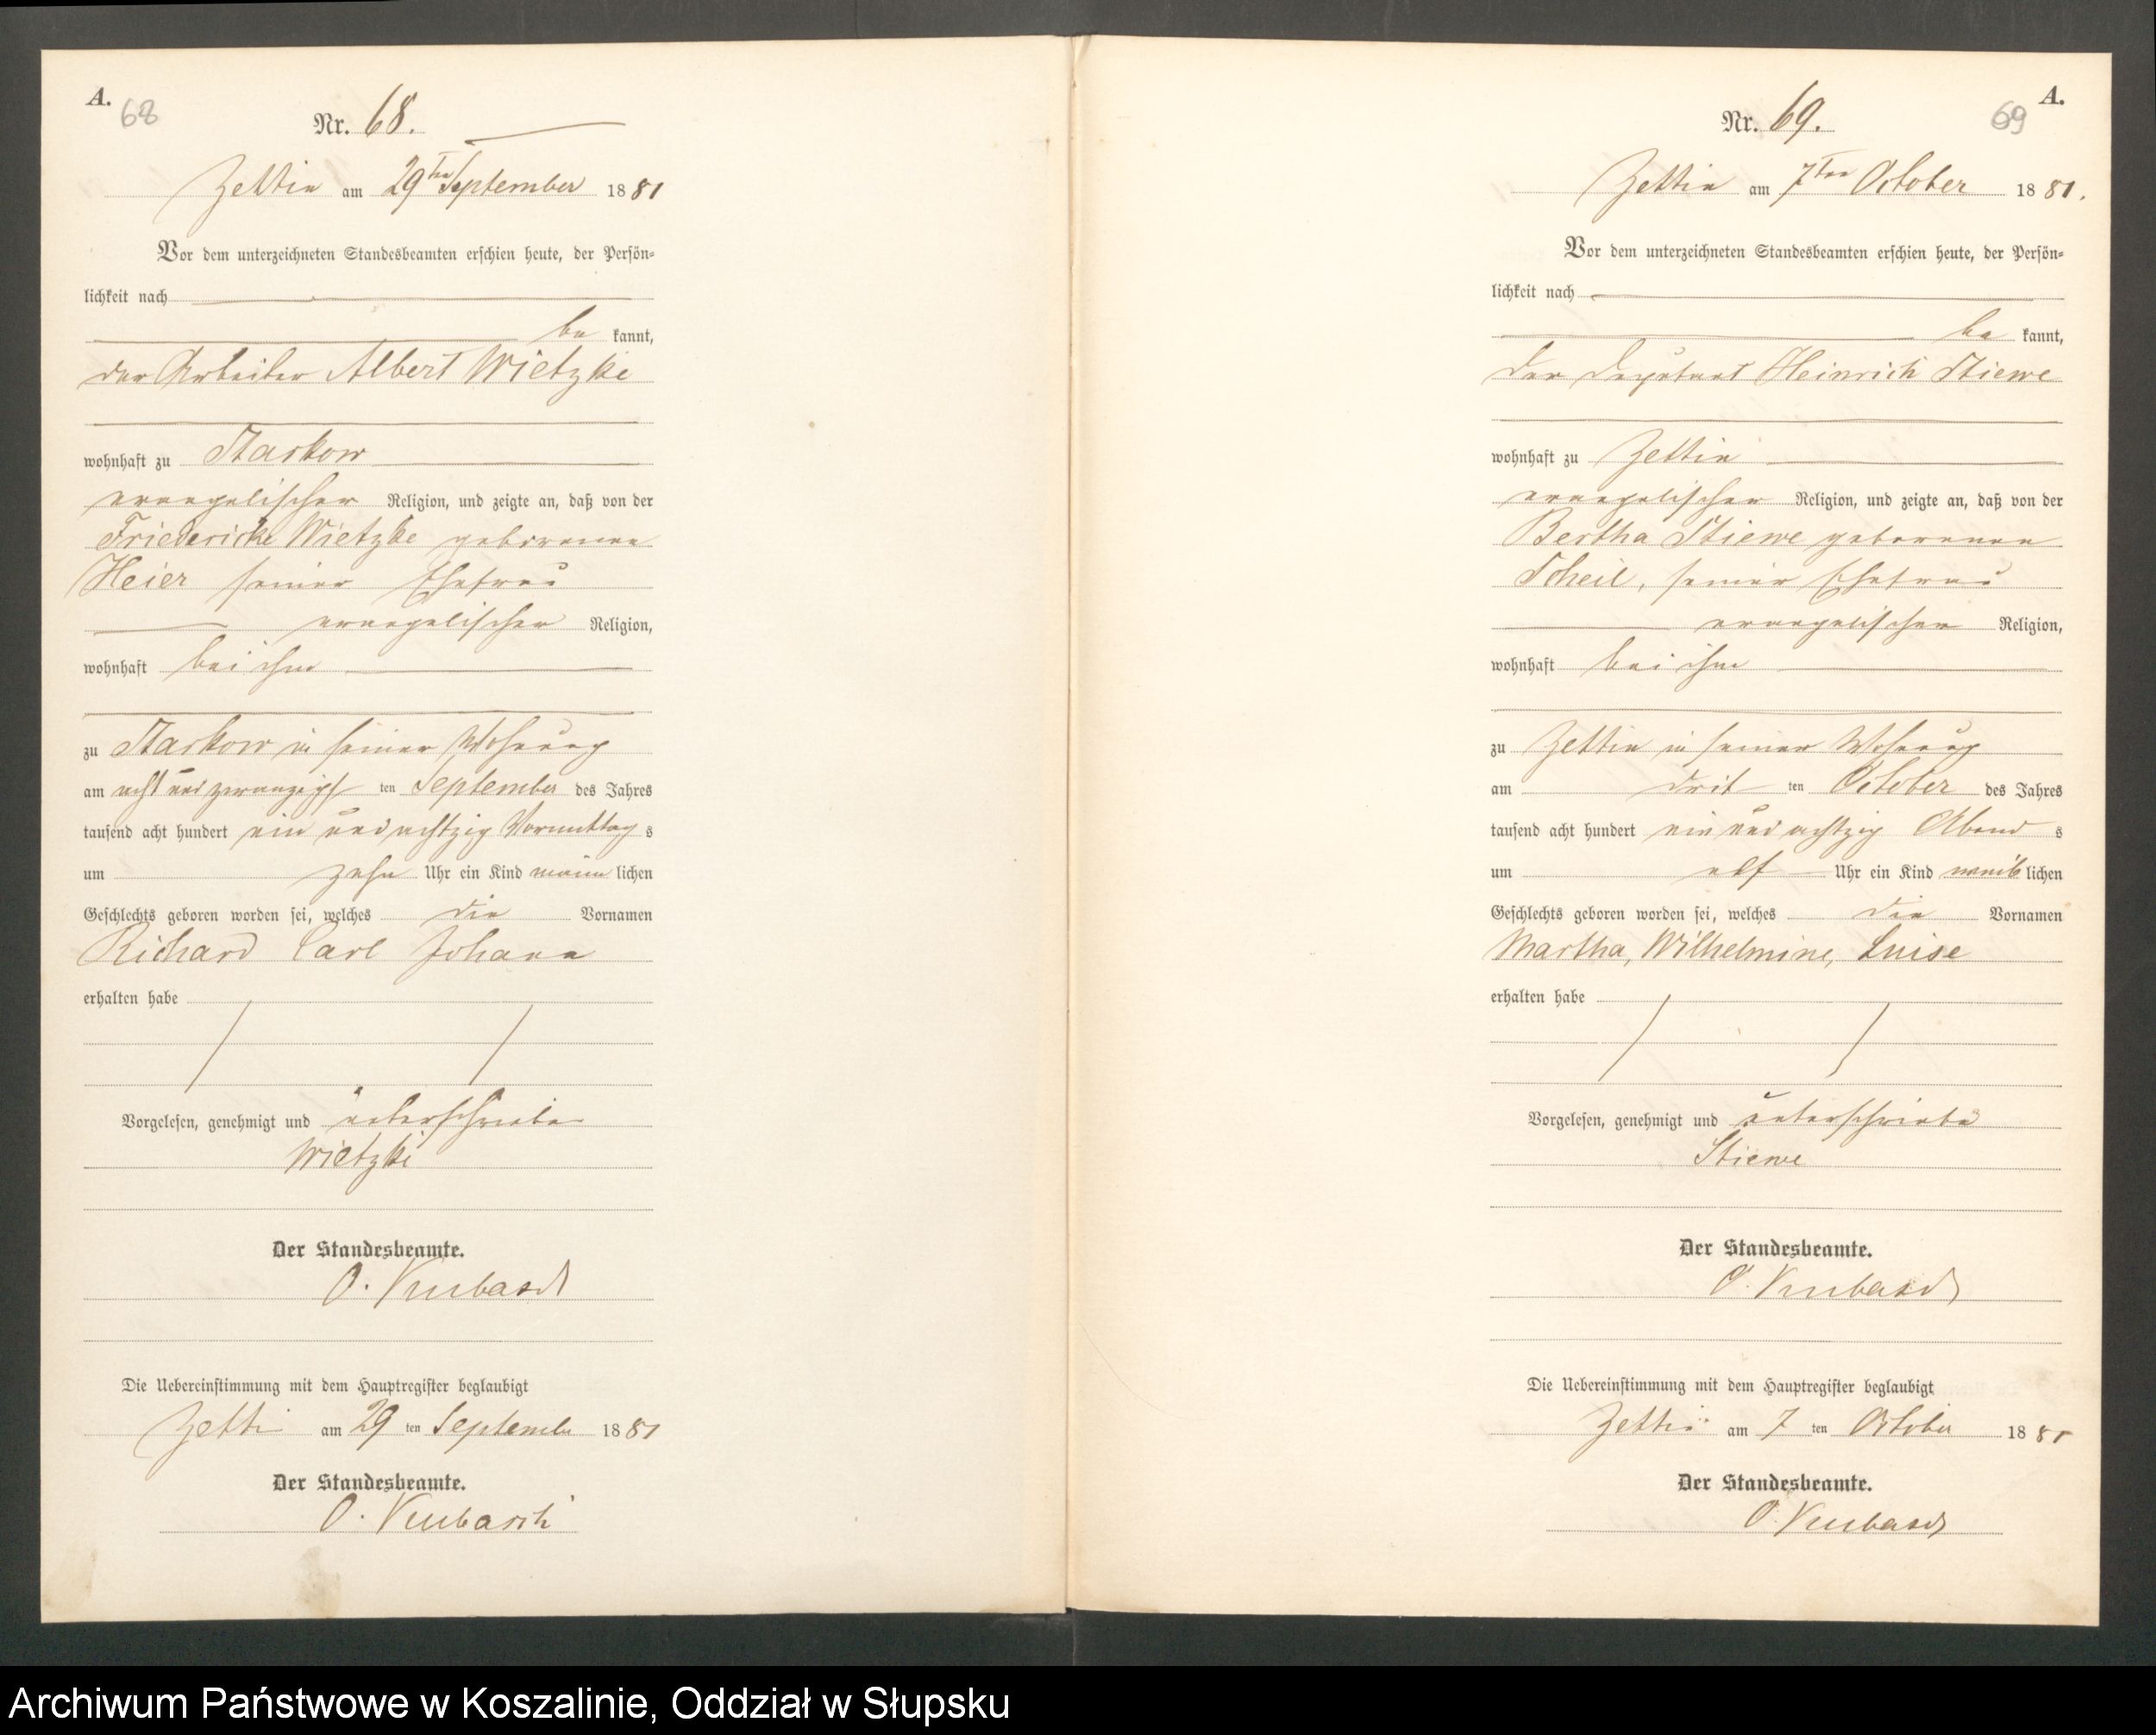 A.
68
Nr. 68.
Zettin am 29ten September 1881
Vor dem unterzeichneten Standesbeamten erschien heute, der Persön-
lichkeit nach
be kannt,
der Arbeiter Albert Wietzke
wohnhaft zu Starkow
evangelischer Religion, und zeigte an, daß von der
Friedericke Wietzke geborenen
Heier seiner Ehefrau
evangelischer Religion,
wohnhaft bei ihm
zu Starkow in seiner Wohnung
am acht und zwanzigst ten September des Jahres
tausend acht hundert ein und achtzig Vormittag s
um zehn Uhr ein Kind männ lichen
Geschlechts geboren worden sei, welches die Vornamen
Richard Carl Johann
erhalten habe
Vorgelesen, genehmigt und unterschrieben
Wietzke
Der Standesbeamte.
O.
Die Uebereinstimmung mit dem Hauptregister beglaubigt
Zettin am 29 ten September 1881
Der Standesbeamte.
O.
A.
69
Nr. 69.
Zettin am 7ten October 1881.
Vor dem unterzeichneten Standesbeamten erschien heute, der Persön-
lichkeit nach
be kannt,
der Deputant Heinrich Stiewe
wohnhaft zu Zettin
evangelischer Religion, und zeigte an, daß von der
Bertha Stiewe geborenen
Scheil, seiner Ehefrau
evangelischer Religion,
wohnhaft bei ihm
zu Zettin in seiner Wohnung
am drit ten October des Jahres
tausend acht hundert ein und achtzig Abend s
um elf Uhr ein Kind weib lichen
Geschlechts geboren worden sei, welches die Vornamen
Martha, Wilhelmine, Luise
erhalten habe
Vorgelesen, genehmigt und unterschrieben
Stiewe
Der Standesbeamte.
O.
Die Uebereinstimmung mit dem Hauptregister beglaubigt
Zettin am 7 ten October 1881
Der Standesbeamte.
O.
Archiwum Państwowe w Koszalinie, Oddział w Słupsku